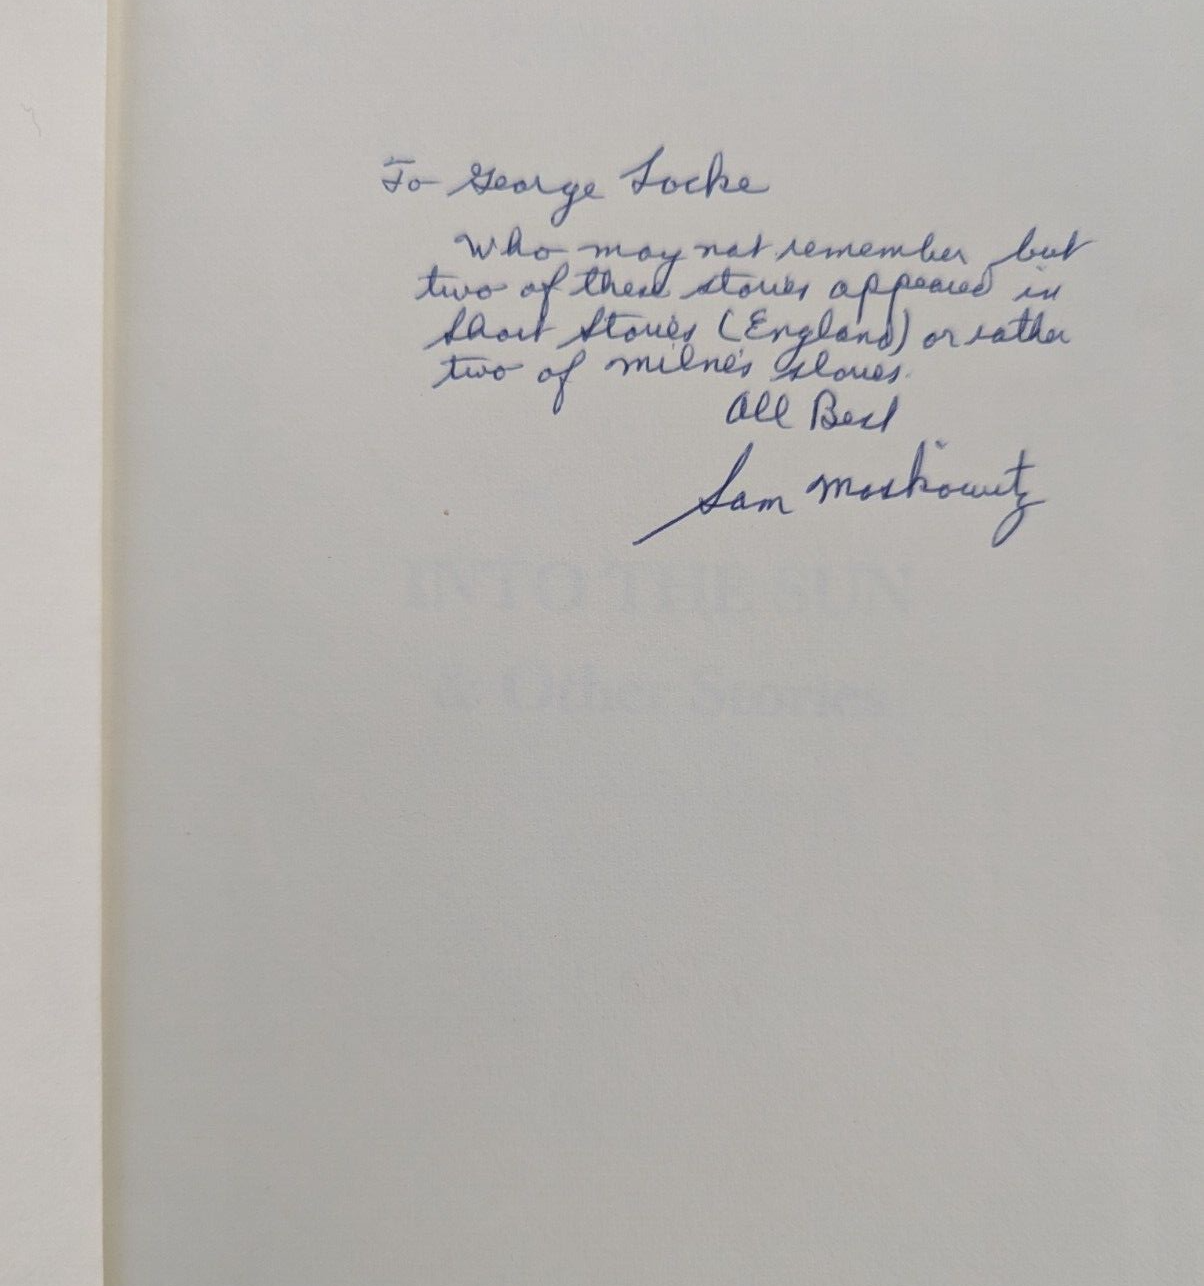 To George Locke
Who may not remember but
two of these stories appeared in
Short Stories (England) or rather
two of Milne's stories.
All Best
Sam Moskowitz
INTO THE SUN
& Other Stories